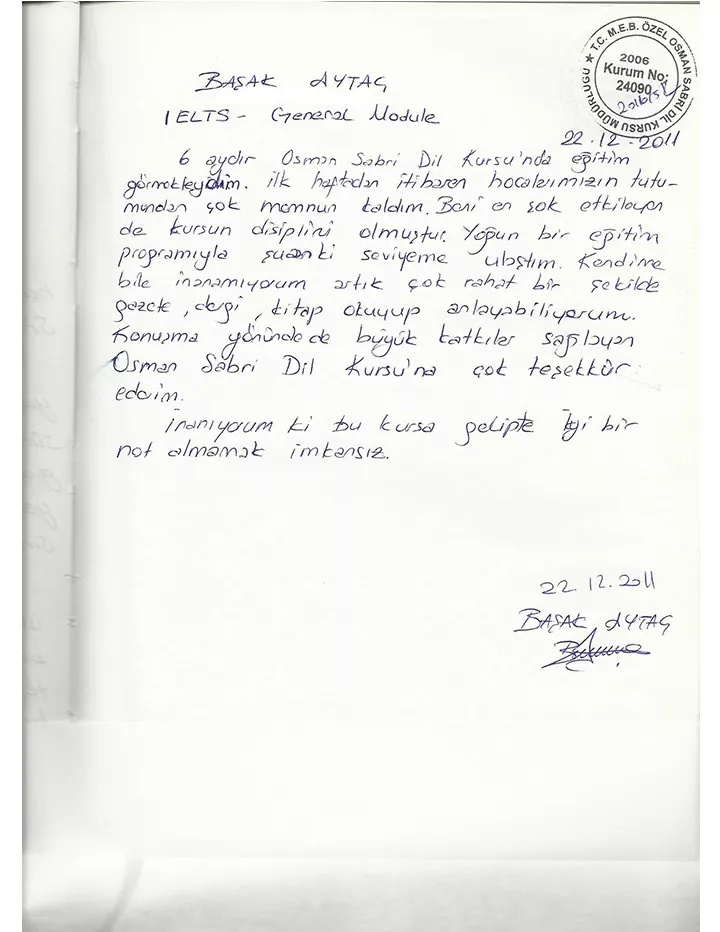 T.C. M.E.B. ÖZEL OSMAN SABRİ DİL KURSU MÜDÜRLÜĞÜ ★
2006
Kurum No:
24090
BAŞAK AYTAÇ
IELTS - General Module
22.12.2011
6 aydır Osman Sabri Dil Kursu'nda eğitim
görmekteydim. ilk haftadan itibaren hocalarımızın tutu-
mundan çok memnun kaldım. Beni en çok etkileyen
de kursun disiplini olmuştur. Yoğun bir eğitim
programıyla şuanki seviyeme ulaştım. Kendime
bile inanamıyorum artık çok rahat bir şekilde
gazete, dergi, kitap okuyup anlayabiliyorum.
Konuşma yönünde de büyük katkılar sağlayan
Osman Sabri Dil Kursu'na çok teşekkür
ederim.
inanıyorum ki bu kursa gelipte iyi bir
not almamak imkansız.
22.12.2011
BAŞAK AYTAÇ